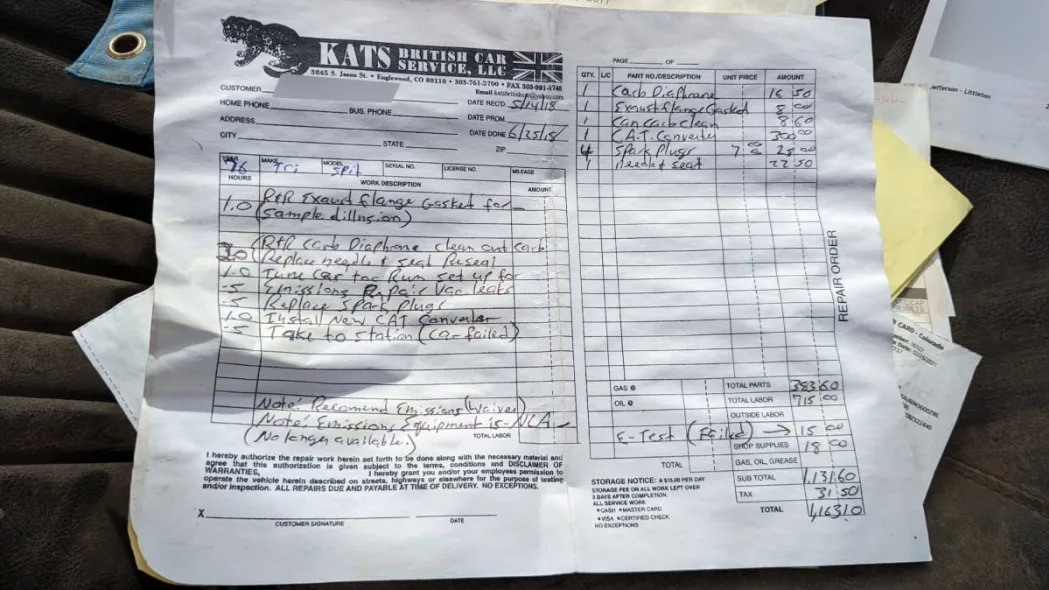 KATS BRITISH CAR SERVICE, LLC
3845 S. Jason St. • Englewood, CO 80110 • 303-761-2700 • FAX 303-991-3748
CUSTOMER
HOME PHONE BUS. PHONE
ADDRESS
CITY STATE ZIP
DATE REC'D. 5/14/18
DATE PROM.
DATE DONE 6/25/18
YEAR 76 MAKE Tri MODEL Spit SERIAL NO. LICENSE NO. MILEAGE
HOURS WORK DESCRIPTION AMOUNT
1.0 R+R Exaud flange Gasked for
(sample dillusion)
R+R Carb Diaphrane clean out carb
Replace needle + seat Reseal
1.0 Tune Car tac Run set up for
.5 Emissions Repair Vac leaks
.5 Replace Spark Plugs
1.0 Install New CAT Converter
.5 Take to station (co-failed)
Note: Recomend Emissions (Waiver)
Note: Emissions Equipment is - NLA
(No longer available.)
TOTAL LABOR
I hereby authorize the repair work herein set forth to be done along with the necessary material and
agree that this authorization is given subject to the terms, conditions and DISCLAIMER OF
WARRANTIES. I hereby grant you and/or your employees permission to
operate the vehicle herein described on streets, highways or elsewhere for the purpose of testing
and/or inspection. ALL REPAIRS DUE AND PAYABLE AT TIME OF DELIVERY. NO EXCEPTIONS.
X
CUSTOMER SIGNATURE DATE
PAGE OF
QTY. L/C PART NO./DESCRIPTION UNIT PRICE AMOUNT
1 Carb Diaphrane 16 50
1 Exaust flange Gasked 8 00
1 Can carb clean 8 60
1 C.A.T. Converty 300 00
4 Spark Plugs 7 00 28 00
1 Needle + seat 22 50
REPAIR ORDER
GAS @ TOTAL PARTS 383 60
OIL @ TOTAL LABOR 715 00
OUTSIDE LABOR
E-Test (Failed) → 15 00
SHOP SUPPLIES 18 00
TOTAL GAS, OIL, GREASE
SUB TOTAL 1,131.60
TAX 31 50
TOTAL 1,163.10
STORAGE NOTICE: A $15.00 PER DAY
STORAGE FEE ON ALL WORK LEFT OVER
3 DAYS AFTER COMPLETION.
ALL SERVICE WORK
• CASH • MASTER CARD
• VISA • CERTIFIED CHECK
NO EXCEPTIONS
Jefferson - Littleton
N CARD - Colorado